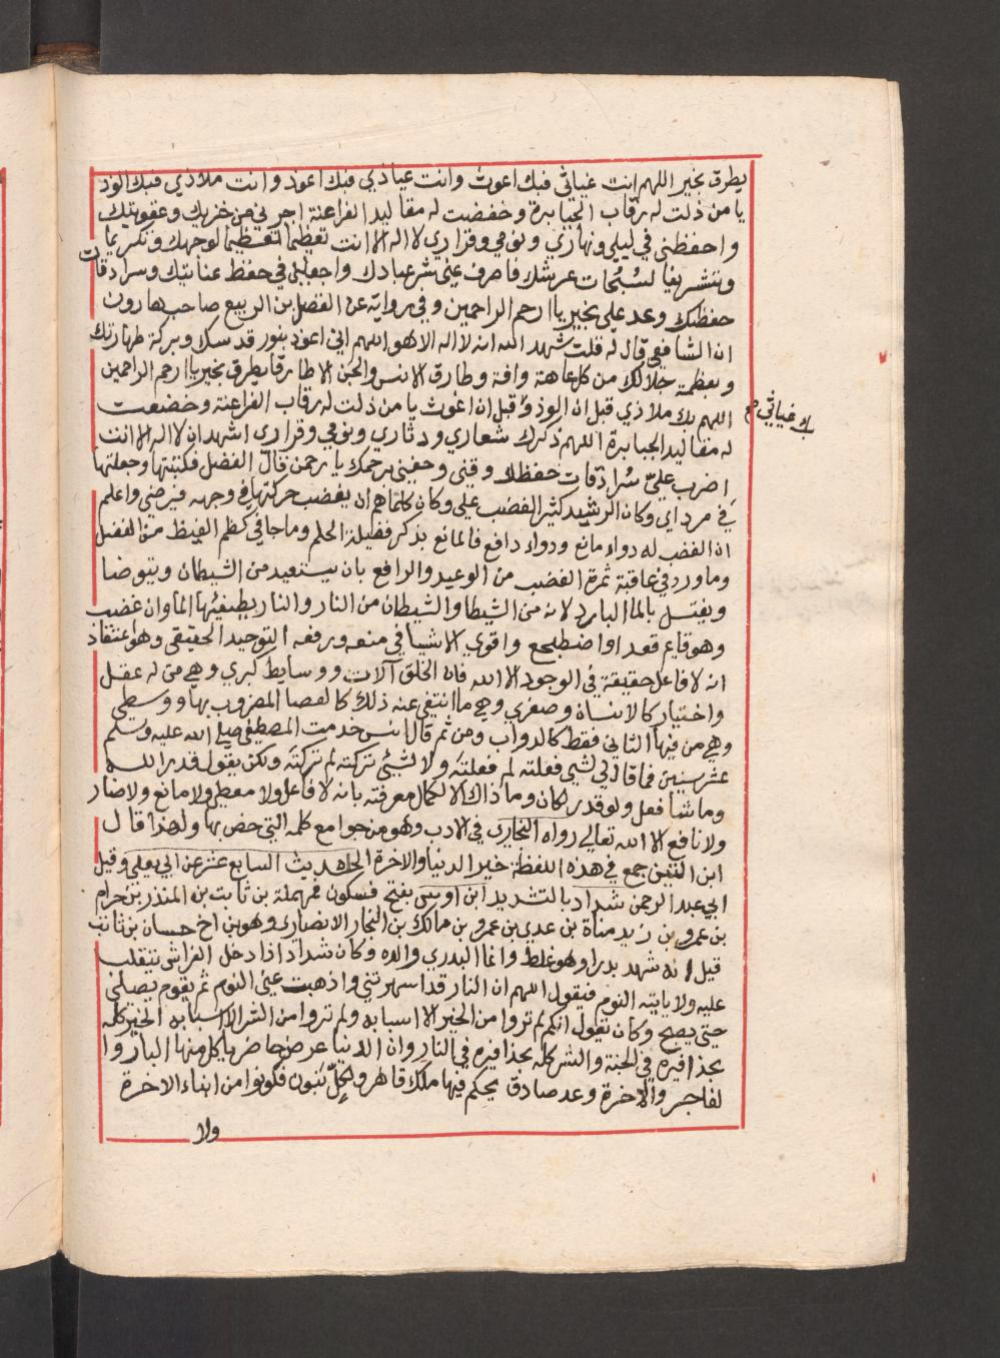 يطرق بخير اللهم انت غياثي فبك اغوث وانت عياذي فبك اعوذ وانت ملاذي فبك الوذ
يا من ذلت له رقاب الجبابرة وخضعت له مقاليد الفراعنة اجرني من خزيك وعقوبتك
واحفظني في ليلي ونهاري ونومي وقراري لا اله الا انت تعظيما لوجهك وتكريما
وتشريفا لسبحات عرشك فاصرف عني شر عبادك واجعلني في حفظ عنايتك وسرادقات
حفظك وعد علي بخير يا ارحم الراحمين وفي رواية عن الفضل بن الربيع صاحب هارون
ان الشافعي قال له قلت شهد الله انه لا اله الا هو اللهم اني اعوذ بنور قدسك وبركة طهارتك
وبعظمة جلالك من كل عاهة وافة وطارق الانس والجن الا طارقا يطرق بخير يا ارحم الراحمين
اللهم بك ملاذي قبل ان الوذ وقبل ان اغوث يا من ذلت له رقاب الفراعنة وخضعت
بك غياثي صح
له مقاليد الجبابرة اللهم ذكرك شعاري ودثاري ونومي وقراري اشهد ان لا اله الا انت
اضرب علي سرادقات حفظك وقني برحمتك يا رحمن قال الفضل فكتبتها وجعلتها
في وكان الرشيد كثير الغضب علي وكان كلما هم ان يغضب حركتها في وجهه فيرضى واعلم
ان الغضب له دواء مانع ودواء دافع فالمانع بذكر فضيلة الحلم وما جا في كظم الغيظ من الفضل
وما ورد في عاقبة ثمرة الغضب من الوعيد والرافع بان يستعيد من الشيطان ويتوضا
ويغتسل بالما البارد لانه من الشيطان والشيطان من النار والنار يطفيها الما وان غضب
وهو قايم قعد او اضطجع واقوى الاشيا في منعه ورفعه التوحيد الحقيقي وهو اعتقاد
انه لا فاعل حقيقة في الوجود الا الله فان الخلق آلات ووسايط كبرى وهي من له عقل
واختيار كالانسان وصغرى وهي ما انتفى عنه ذلك كالعصا المضروب بها ووسطى
وهي من فيها الثاني فقط كالدواب ومن ثم قال انس خدمت المصطفى صلى الله عليه وسلم
عشر سنين فما قال لي لشي فعلته لم فعلته ولا لشيء تركته لم تركته ولكن يقول قدر الله
وما شا فعل ولو قدر لكان وما ذاك الا لكمال معرفته بانه لا فاعل ولا معطي ولا مانع ولا ضار
ولا نافع الا الله تعالى رواه البخاري في الادب وهو من جوامع كلمه التي خص بها ولهذا قال
ابن التين جمع في هذه اللفظة خير الدنيا والاخرة الحديث السابع عشر عن ابي يعلى وقيل
ابي عبد الرحمن شداد بالتشديد ابن اوس بفتح فسكون فمهملة بن ثابت بن المنذر بن حرام
بن عمرو بن زيد مناة بن عدي بن عمرو بن مالك بن النجار الانصاري وهو بن اخ حسان بن ثابت
قيل انه شهد بدرا وهو غلط وانما البدري والده وكان شداد اذا دخل الفراش يتقلب
عليه ولا ياتيه النوم فيقول اللهم ان النار قد اسهرتني واذهبت عني النوم ثم يقوم يصلي
حتى يصبح وكان يقول انكم لم تروا من الخير الا اسبابه ولم تروا من الشر الا اسبابه الخير كله
بحذافيره في الجنة والشر كله بحذافيره في النار وان الدنيا عرض حاضر ياكل منها البار وا
لفاجر والآخرة وعد صادق يحكم فيها ملك قاهر ولكل بنون فكونوا من ابناء الاخرة
ولا